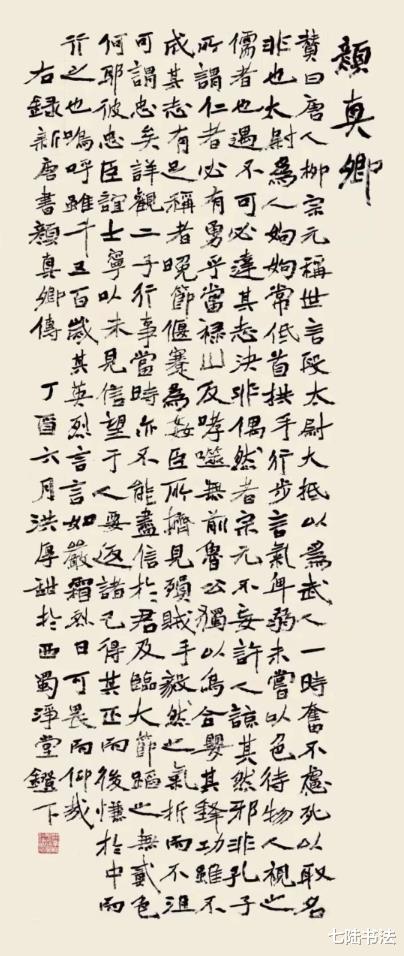 顏真卿
贊曰唐人柳宗元稱世言段太尉大抵以為武人一時奮不慮死以取名
非也太尉為人姁姁常低首拱手行步言氣卑弱未嘗以色待物人視之
儒者也遇不可必達其志決非偶然者宗元不妄許人諒其然邪非孔子
所謂仁者必有勇乎當祿山反哮噬無前魯公獨以烏合嬰其鋒功雖不
成其志有足稱者晚節偃蹇為姦臣所擠見殞賊手毅然之氣折而不沮
可謂忠矣詳觀二子行事當時亦不能盡信於君及臨大節蹈之無貳色
何耶彼忠臣誼士寧以未見信望于人要返諸己得其正而後慊於中而
行之也嗚呼雖千五百歲其英烈言言如嚴霜烈日可畏而仰哉
右錄新唐書顏真卿傳 丁酉六月洪厚甜於西蜀淨堂鐙下
七陆书法